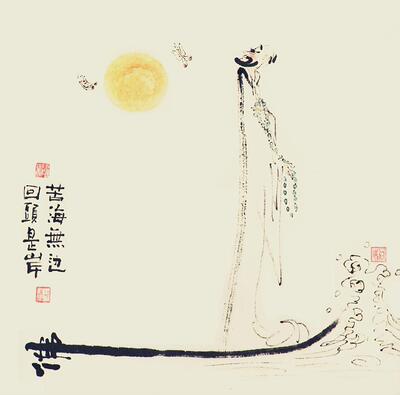 苦海無边
回頭是岸
佛